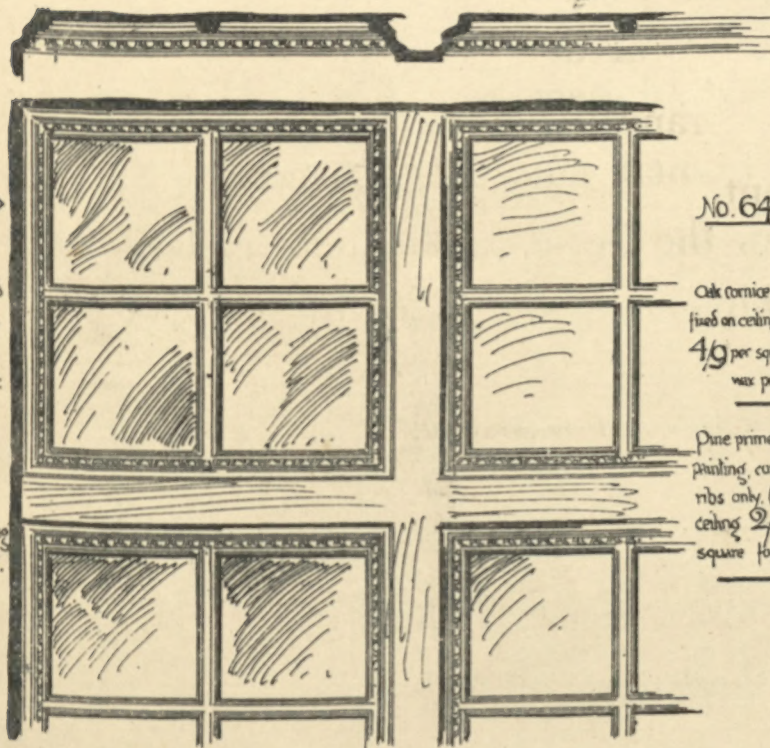 No. 64
Oak cornice
fixed on ceiling
4/9 per sq
wax po
Pine prime
painting, co
ribs only,
ceiling 2/
square fo